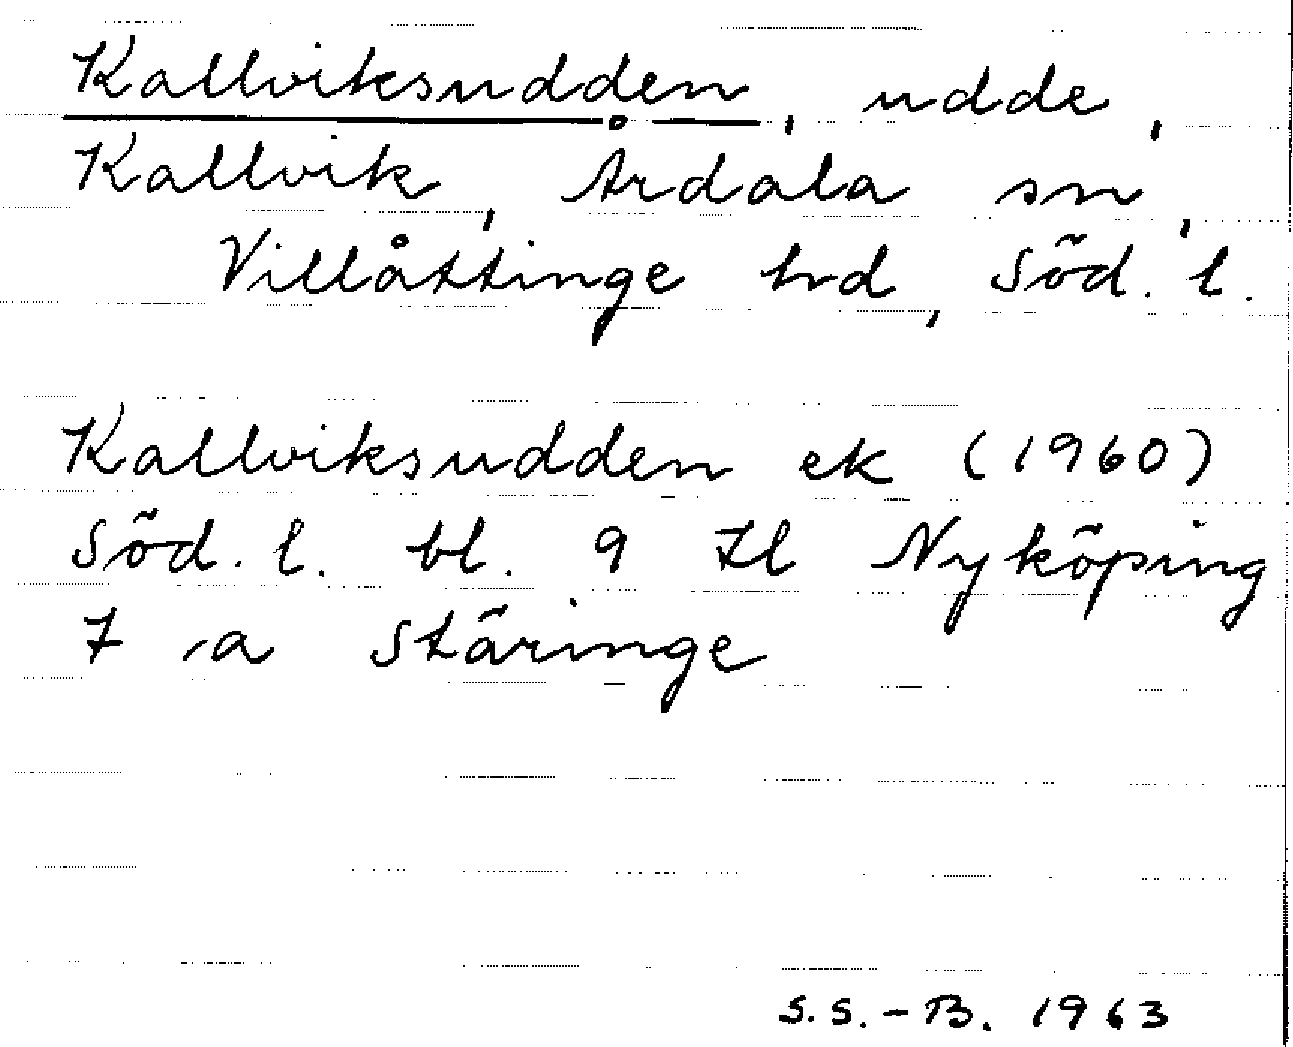 Kallviksudden, udde,
Kallvik, Årdala sn,
Villåttinge hrd, Söd. l.
Kallviksudden ek (1960)
Söd. l. bl. 9 Il Nyköping
7 a Stäringe
S.S.-B. 1963